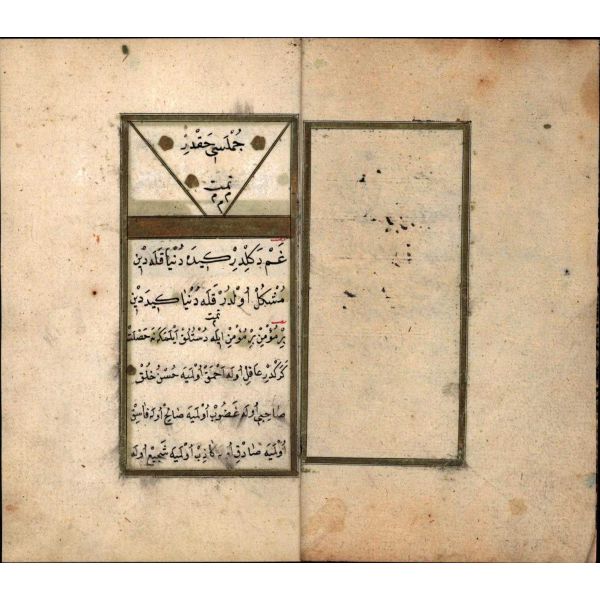 جُمْلَسِی حَقْدِرْ
تمت
غَمْ دَكِلْدِرْ كِيدَه دُنْيَا قَلَه دِينْ
مُشْكِلْ اُولْدُرْ قَلَه دُنْيَا كِيدَه دِينْ
تمت
بِرْ مُؤْمِنْ بِرْ مُؤْمِنْ اِيلَه دُسْتْلُقْ اَيْلَمَكَه خَصْلَتْ
كَرَكْدِرْ عَاقِلْ اُولَه اَحْمَقْ اُولْمَيَه حُسْنِ خُلُقْ
صَاحِبِى اُولَه غَضُوبْ اُولْمَيَه صَالِحْ اُولَه فَاسِقْ
اُولْمَيَه صَادِقْ كَاذِبْ اُولْمَيَه شَجِيعْ اُولَه